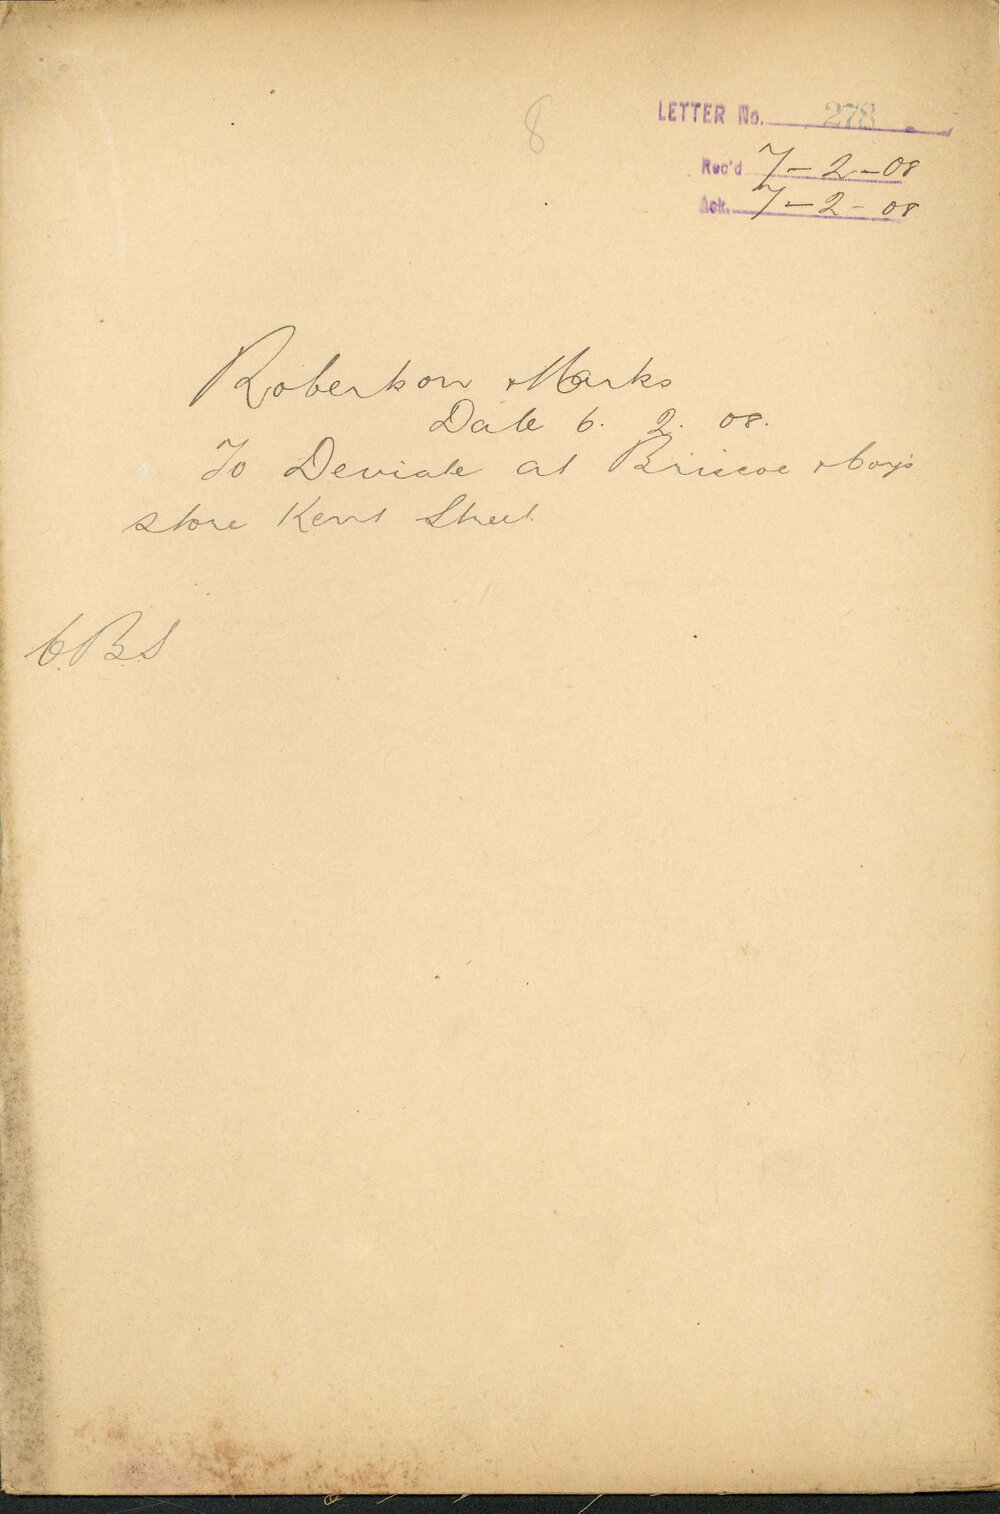 8
LETTER No. 278
Rec'd 7-2-08
Ack. 7-2-08
Robertson & Marks
Date 6. 2. 08.
To Deviate at Briscoe & Coy's
store Kent Street
C.B.S